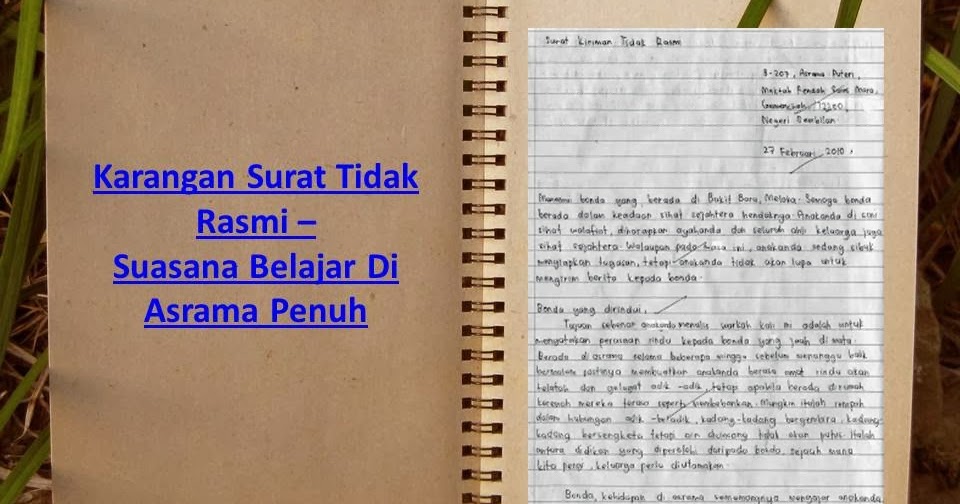 Karangan Surat Tidak
Rasmi –
Suasana Belajar Di
Asrama Penuh
Surat Kiriman Tidak Rasmi
B-207, Asrama Puteri,
Maktab Rendah Sains Mara,
Negeri Sembilan
27 Februari 2010,
bonda yang berada di Bukit Baru, Melaka. Semoga bonda
berada dalam keadaan sihat sejahtera hendaknya. Anakanda di sini
sihat walafiat, diharapkan ayahanda dan seluruh ahli keluarga juga
sihat sejahtera. Walaupun pada masa ini, anakanda sedang sibuk
menyiapkan tugasan, tetapi anakanda tidak akan lupa untuk
mengirim berita kepada bonda.
Bonda yang dirindui,
Tujuan sebenar anakanda menulis warkah kali ini adalah untuk
menyatakan perasaan rindu kepada bonda yang jauh di mata.
Berada di asrama selama beberapa minggu sebelum menunggu balik
bermalam pastinya membuatkan anakanda berasa amat rindu akan
telatah dan gelagat adik-adik, tetapi apabila berada dirumah
kerenah mereka terasa seperti membebankan. Mungkin itulah rempah
dalam hubungan adik-beradik, kadang-kadang bergembira, kadang-
kadang bersengketa tetapi air dicincang tidak akan putus. Itulah
antara didikan yang diperolehi daripada bonda, sejauh mana
kita pergi, keluarga perlu diutamakan.
Bonda, kehidupan di asrama sememangnya mengajar anakanda